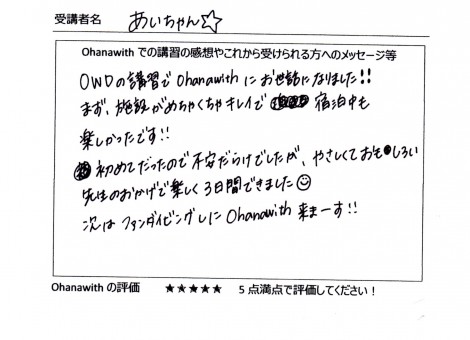 受講者名 あいちゃん☆
Ohanawith での講習の感想やこれから受けられる方へのメッセージ等
OWDの講習でOhanawithにお世話になりました!!
まず、施設がめちゃくちゃキレイで 宿泊中も
楽しかったです!!
初めてだったので不安だらけでしたが、やさしくておもしろい
先生のおかげで楽しく3日間できました☺
次はファンダイビングしにOhanawith来まーす!!
Ohanawith の評価 ★★★★★ 5点満点で評価してください！